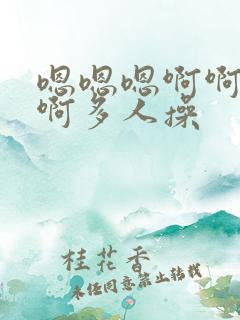 嗯嗯嗯啊啊
啊多人操
桂花香
未经同意禁止转载